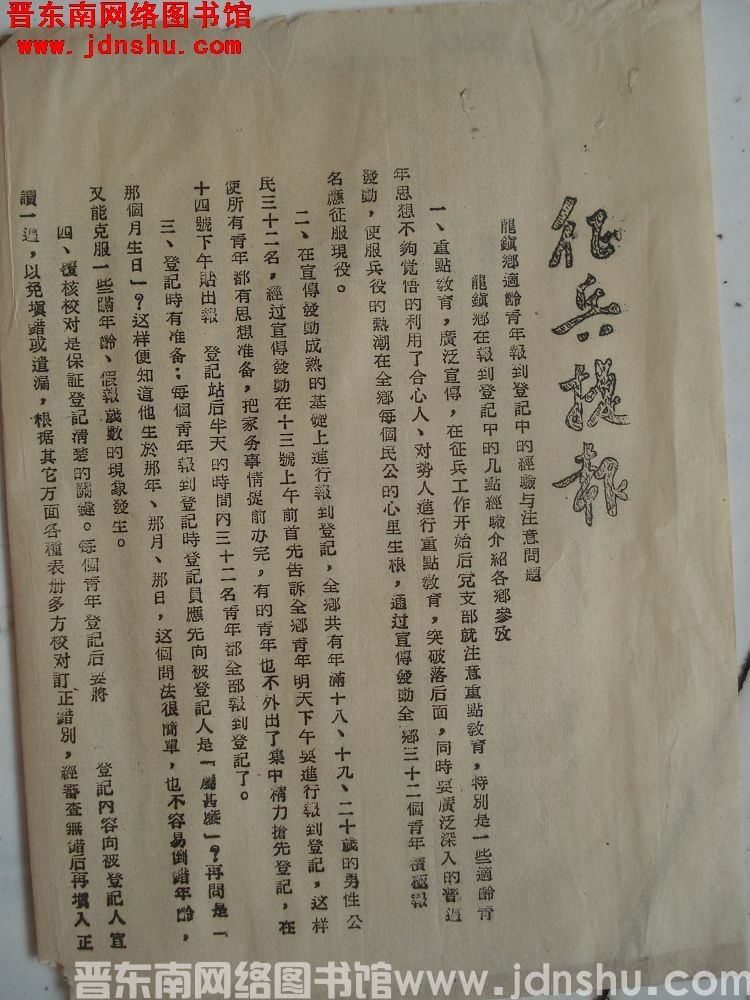 晋东南网络图书馆
www.jdnshu.com
征兵捷报
龍鎮鄉適齡青年報到登記中的經驗与注意問題
龍鎮鄉在報到登記中的几點經驗介紹各鄉參攷
一、重點敎育，廣泛宣傳，在征兵工作開始后党支部就注意重點敎育，特別是一些適齡青
年思想不夠覚悟的利用了合心人、対勢人進行重點敎育，突破落后面，同時要廣泛深入的普遍
發動，使服兵役的熱潮在全鄉每個民公的心里生根，通过宣傳發動全鄉三十二個青年積極報
名應征服現役。
二、在宣傳發動成熟的基礎上進行報到登記，全鄉共有年滿十八、十九、二十歲的男性公
民三十二名，經过宣傳發動在十三號上午前首先告訴全鄉青年明天下午要進行報到登記，这样
使所有青年都有思想准备，把家务事情提前办完，有的青年也不外出了集中精力搶先登記，在
十四號下午貼出報 登記站后半天的時間内三十二名青年都全部報到登記了。
三、登記時有准备：每個青年報到登記時登記員應先向被登記人是「屬甚麽」？再問是「
那個月生日」？这样便知道他生於那年、那月、那日，这個問法很簡單，也不容易倒錯年齡，
又能克服一些瞞年齡、假報歲数的現象發生。
四、覆核校对是保証登記清楚的關鍵。每個青年登記后要將 登記内容向被登記人宣
讀一遍，以免填錯或遺漏，根据其它方面各種表册多方校对訂正錯別，經審查無錯后再填入正
晋东南网络图书馆www.jdnshu.com